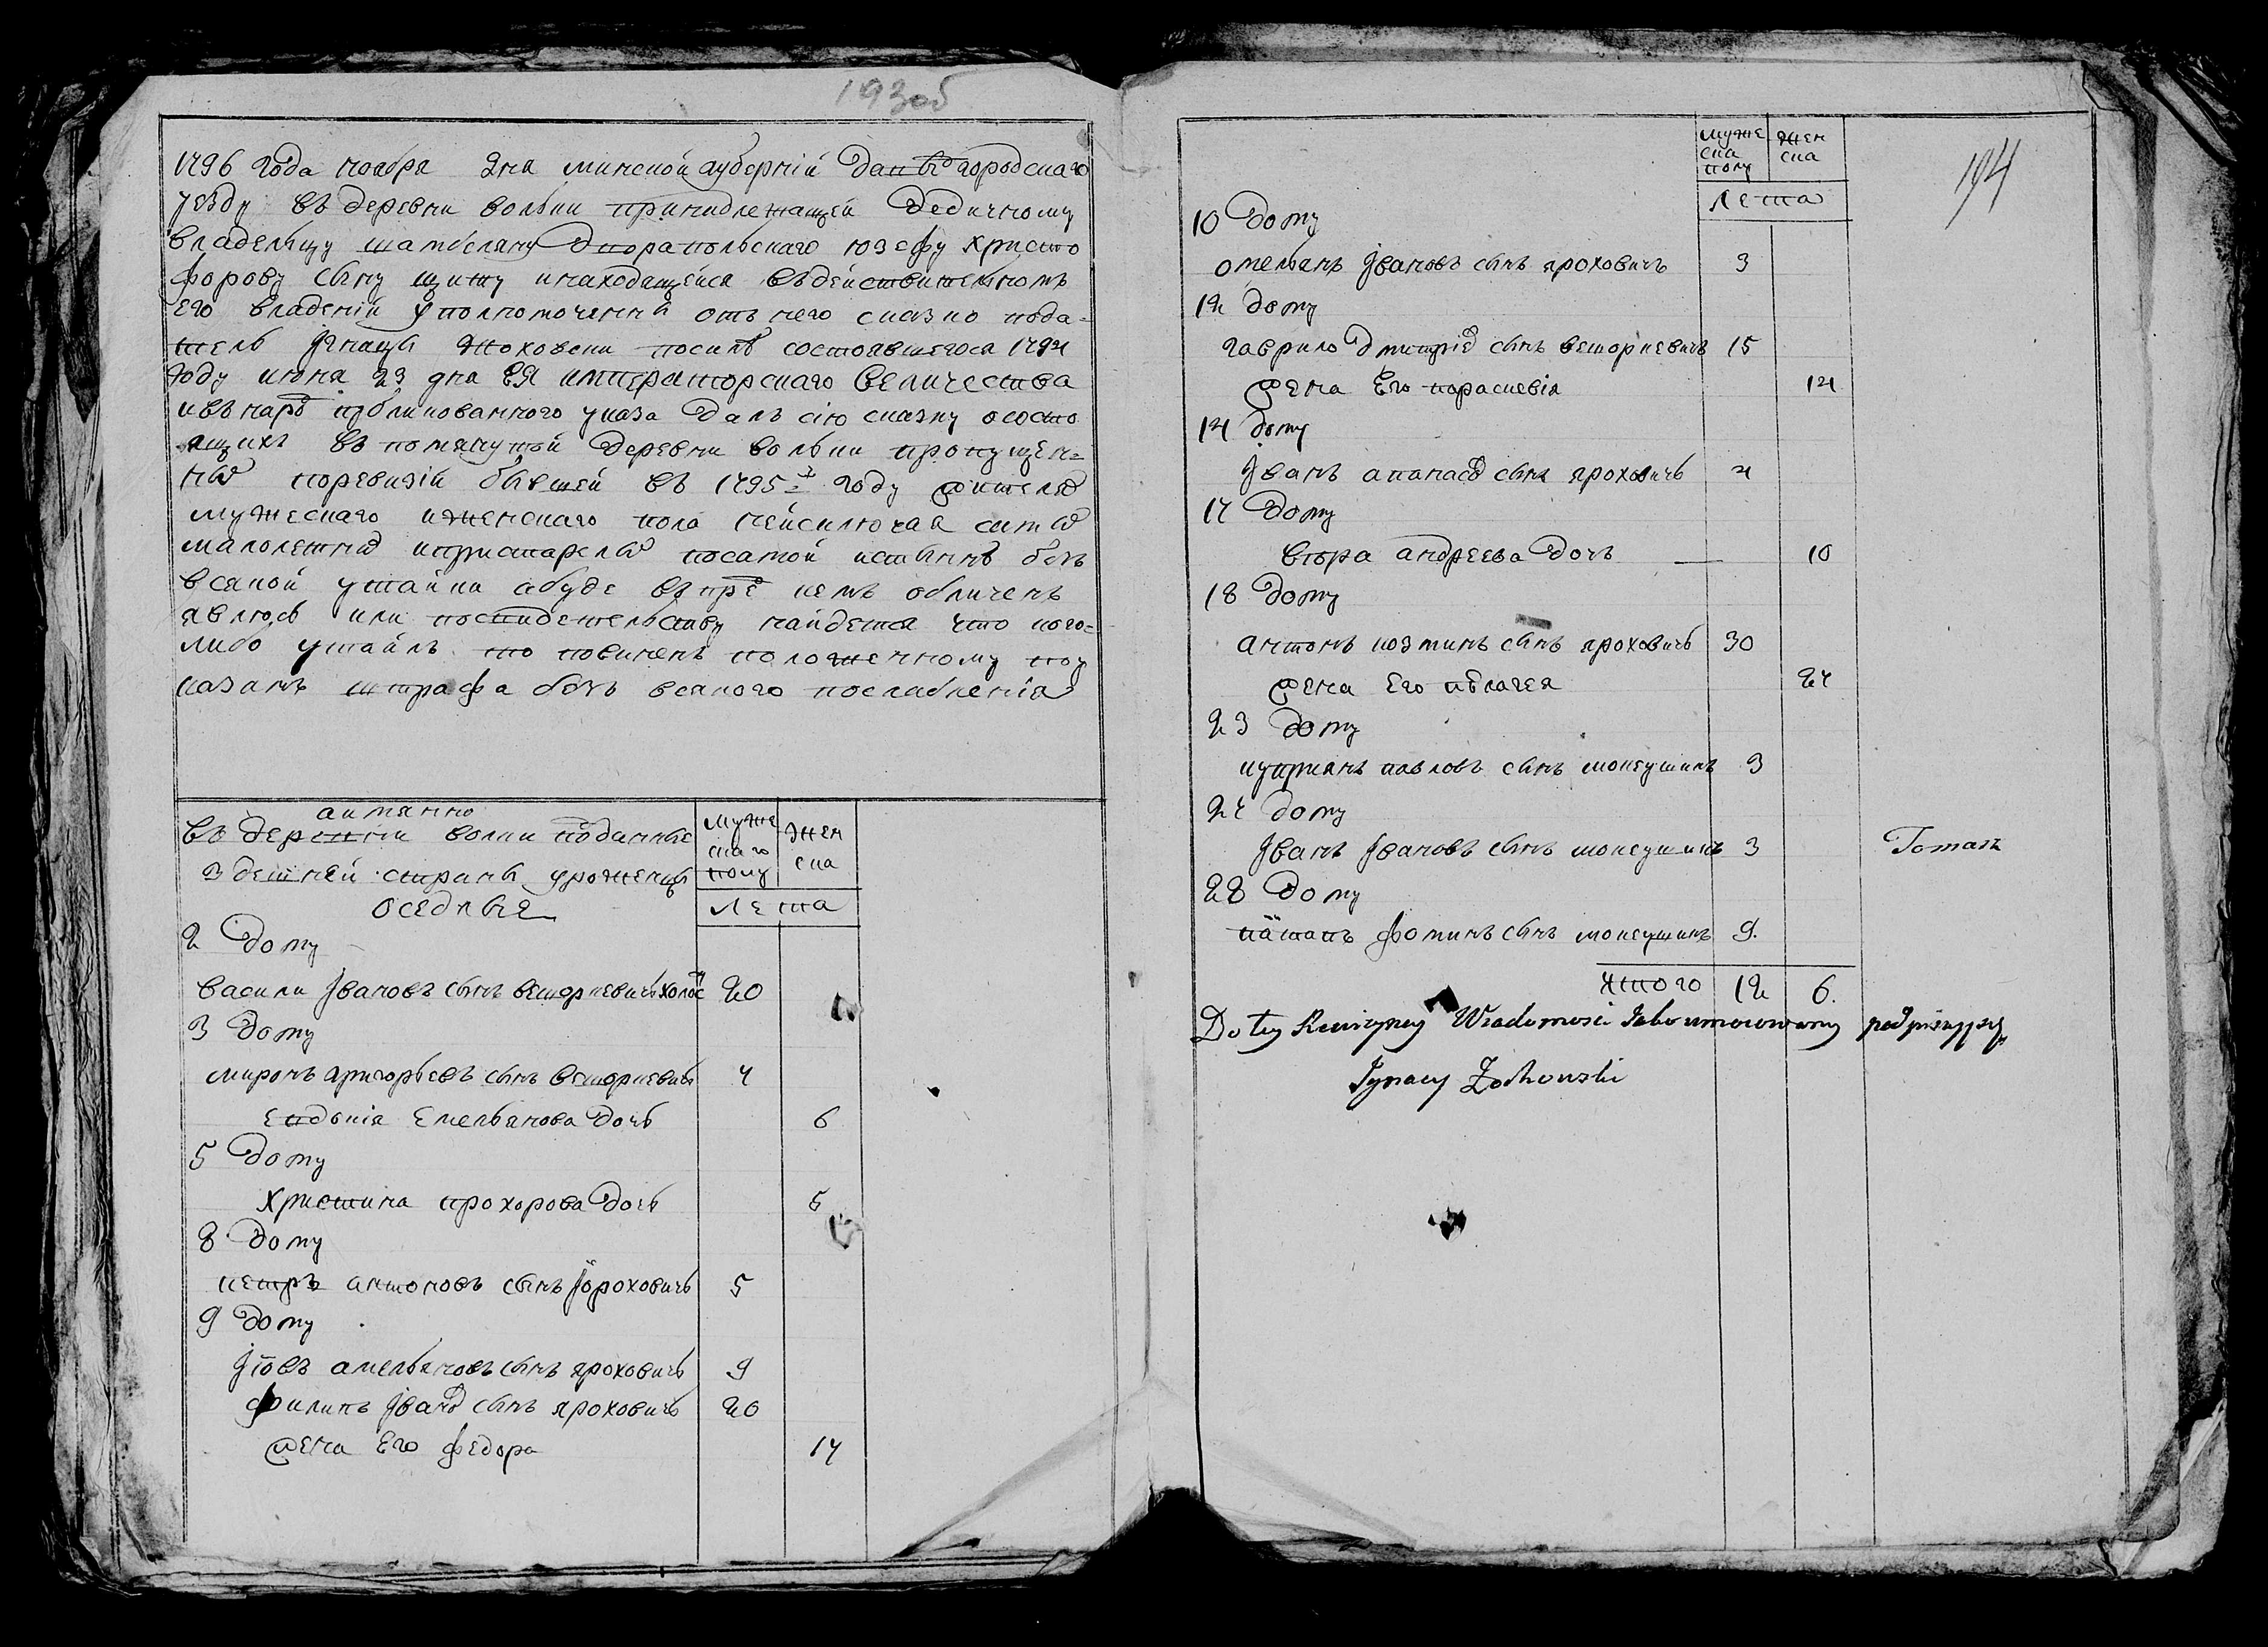 193об
1796 года ноября дня минской губерній Давыдгородскаго
уезду въ деревни вольки принадлежащей дедичному
владельцу шамбеляну двора польскаго юзефу христо
форову сыну щиту инаходящейся въдействительномъ
его владеній уполномоченны отъ него сказко пода-
тель Jгнацы жоховски посилѣ состоявшегося 1794
году июня 23 дня ЕЯ императорскаго величества
ивънаро публикованного указа далъ сію сказку ососто
ящихъ въ помянутой деревни вольки пропущен=
ны поревизій бывшей въ 1795-г году жителе
мужескаго иженскаго пола неисключая самы
малолетны ипристарелы посамой истынѣ безъ
всякой утайки абуде впре кемъ обличенъ
явлюсь или посвидетельству найдется что кого=
либо утаилъ то повиненъ положенному поу
казамъ штрафа безъ всякого послабленія
аимянно
въ деревни волки подинные
здешней страны уроженцы
оседлые
муже
скаго
полу
жен
ска
лета
2 дому
васили Jвановъ сынъ веторкевичъ холос 20
3 дому
миронъ григорьевъ сынъ веторкевичъ 4
Евдокія Емельянова дочь 6
5 дому
христина прохорова дочь 5
8 дому
петръ антоновъ сынъ Jороховичъ 5
9 дому
Jовъ амельяновъ сынъ яроховичъ 9
филипъ Jвано сынъ яроховичъ 20
жена Его федора 17
194
муже
ска
полу
жен
ска
лета
10 дому
омельянъ Jвановъ сынъ яроховичъ 3
12 дому
гаврило дмитрie сынъ веторкевичъ 15
жена Его параскевія 14
14 дому
Jванъ апанасо сынъ яроховичъ 4
17 дому
вѣра андреева дочь — 10
18 дому
антонъ козминъ сынъ яроховичъ 30
жена Его пелагея 27
23 дому
куприянъ павловъ сынъ моисушикъ 3
27 дому
Jванъ Jвановъ сынъ моисушикъ 3 Tomasz
28 дому
патапъ фоминъ сынъ моисушикъ 9.
Итого 12 6.
Do tey Rewizyney Wiadomosci Jako umocowany podpisuję się
Jgnacy Zochowski